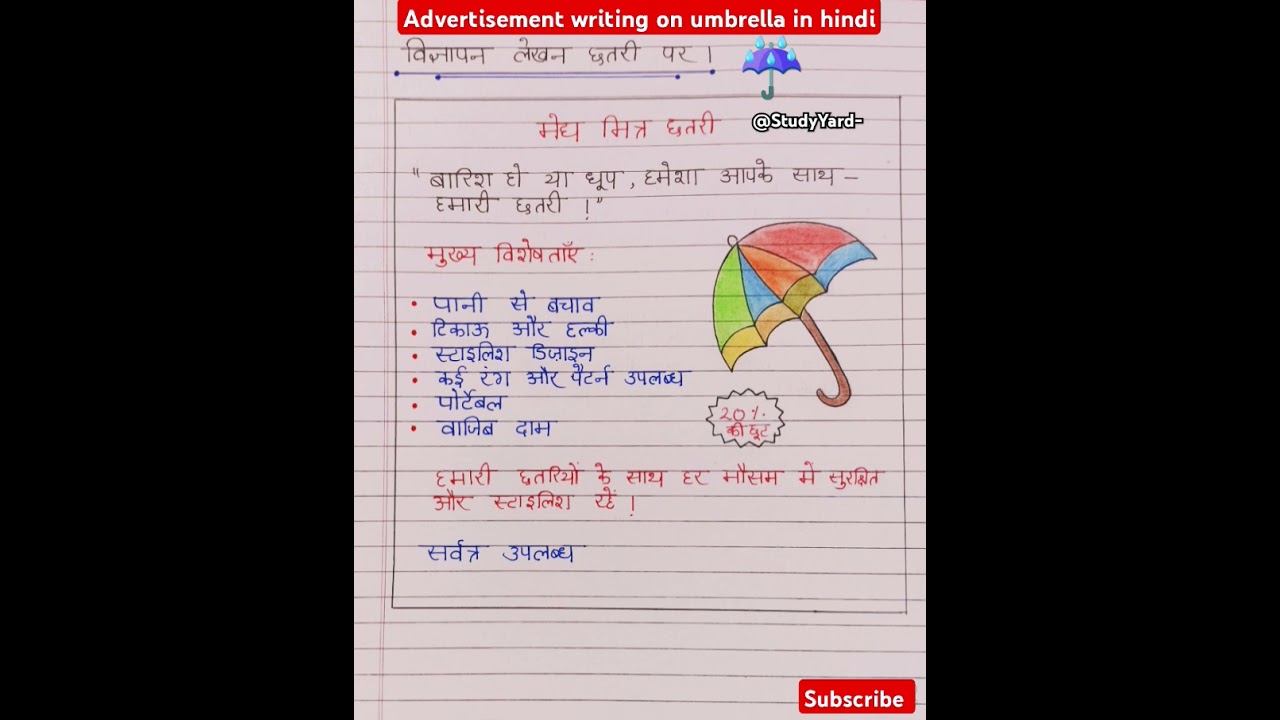 Advertisement writing on umbrella in hindi
विज्ञापन लेखन छतरी पर ।
@StudyYard-
मेघ मित्र छतरी
"बारिश हो या धूप, हमेशा आपके साथ –
हमारी छतरी !"
मुख्य विशेषताएँ :
• पानी से बचाव
• टिकाऊ और हल्की
• स्टाइलिश डिज़ाइन
• कई रंग और पैटर्न उपलब्ध
• पोर्टेबल
• वाजिब दाम
20%
की छूट
हमारी छतरियों के साथ हर मौसम में सुरक्षित
और स्टाइलिश रहें !
सर्वत्र उपलब्ध
Subscribe